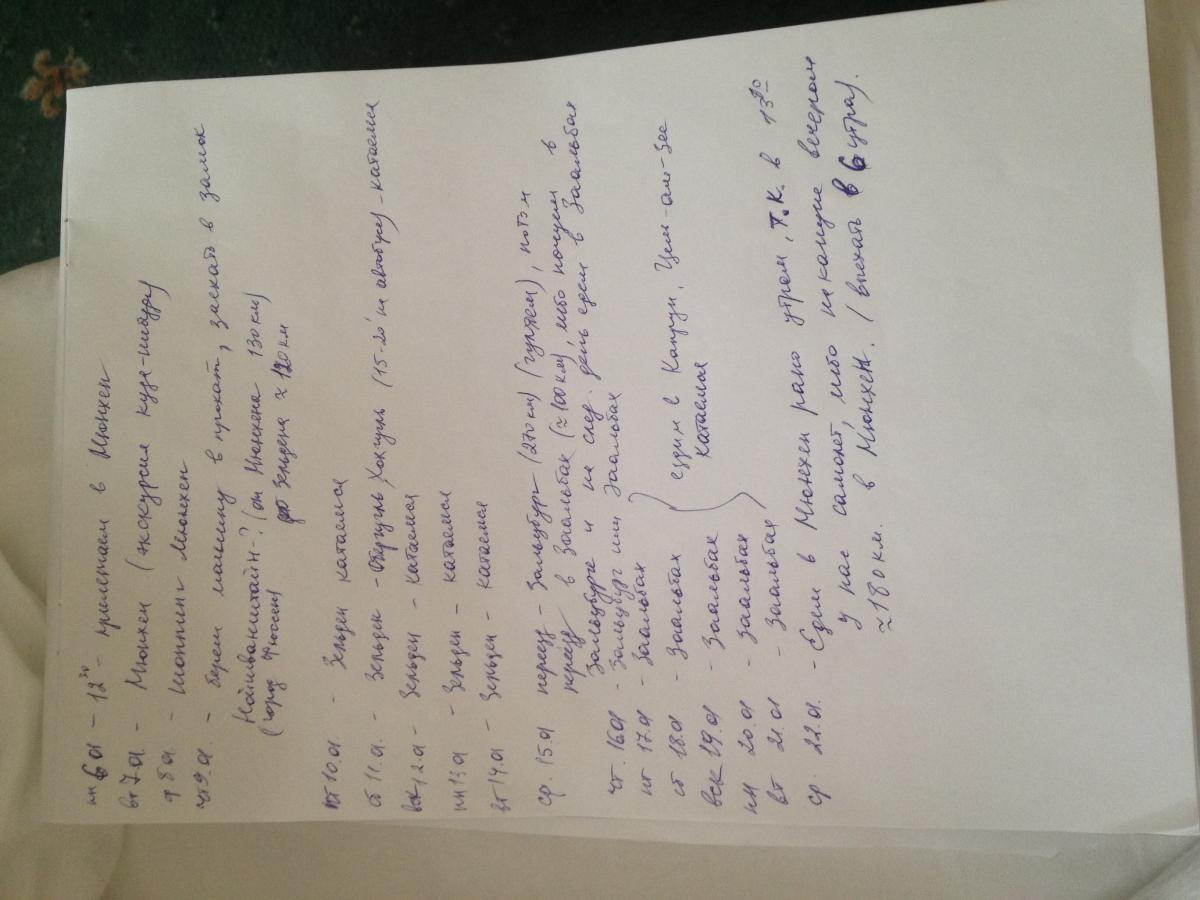 пн 6.01 - 12²⁰ - прилетаем в Мюнхен
вт 7.01 - Мюнхен (экскурсия куда-нибудь)
ср 8.01 - шоппинг Мюнхен
чт 9.01 - берем машину в прокат, заехать в замок
Нойшванштайн-? (от Мюнхена 130 км)
(город Фюссен) до Зельдена ≈ 120 км
пт 10.01. - Зельден катаемся
сб 11.01. - Зельден - Обергургль, Хохгургль (15-20' на автобусе) - катаемся
вск 12.01 - Зельден - катаемся
пн 13.01 - Зельден - катаемся
вт 14.01 - Зельден - катаемся
ср. 15.01 переезд - Зальцбург (270 км) (гуляем), потом
переезд в Заальбах (≈ 100 км), либо ночуем в
Зальцбурге и на след. день едем в Заальбах
чт. 16.01 - Зальцбург или Заальбах
пт 17.01 - Заальбах
сб 18.01 - Заальбах
ездим в Капрун, Целль-ам-Зее
катаемся
вск 19.01 - Заальбах
пн 20.01 - Заальбах
вт 21.01 - Заальбах
ср. 22.01. - Едем в Мюнхен рано утром, т.к. в 13³⁰
у нас самолет, либо накануне вечером
≈ 180 км. в Мюнхен. (выехать в 6 утра).